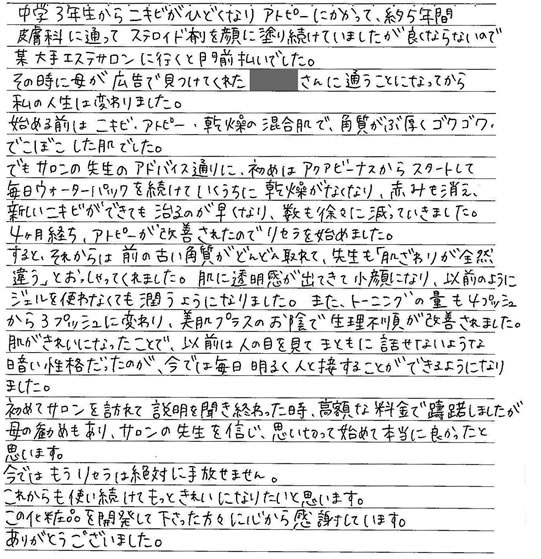 中学3年生からニキビがひどくなりアトピーにかかって、約5年間
皮膚科に通ってステロイド剤を顔に塗り続けていましたが良くならないので
某大手エステサロンに行くと門前払いでした。
その時に母が広告で見つけてくれた さんに通うことになってから
私の人生は変わりました。
始める前はニキビ・アトピー・乾燥の混合肌で、角質がぶ厚くゴワゴワ・
でこぼこした肌でした。
でもサロンの先生のアドバイス通りに、初めはアクアビーナスからスタートして
毎日ウォーターパックを続けていくうちに乾燥がなくなり、赤みも消え、
新しいニキビができても治るのが早くなり、数も徐々に減っていきました。
4ヶ月経ち、アトピーが改善されたのでリセラを始めました。
すると、それからは前の古い角質がどんどん取れて、先生も「肌ざわりが全然
違う」とおっしゃってくれました。肌に透明感が出てきて小顔になり、以前のように
ジェルを使わなくても潤うようになりました。また、トーニングの量も4プッシュ
から3プッシュに変わり、美肌プラスのお陰で生理不順が改善されました。
肌がきれいになったことで、以前は人の目を見てまともに話せないような
暗い性格だったのが、今では毎日明るく人と接することができるようになり
ました。
初めてサロンを訪れて説明を聞き終わった時、高額な料金で躊躇しましたが
母の勧めもあり、サロンの先生を信じ、思い切って始めて本当に良かったと
思います。
今ではもうリセラは絶対に手放せません。
これからも使い続けてもっときれいになりたいと思います。
この化粧品を開発して下さった方々に心から感謝しています。
ありがとうございました。